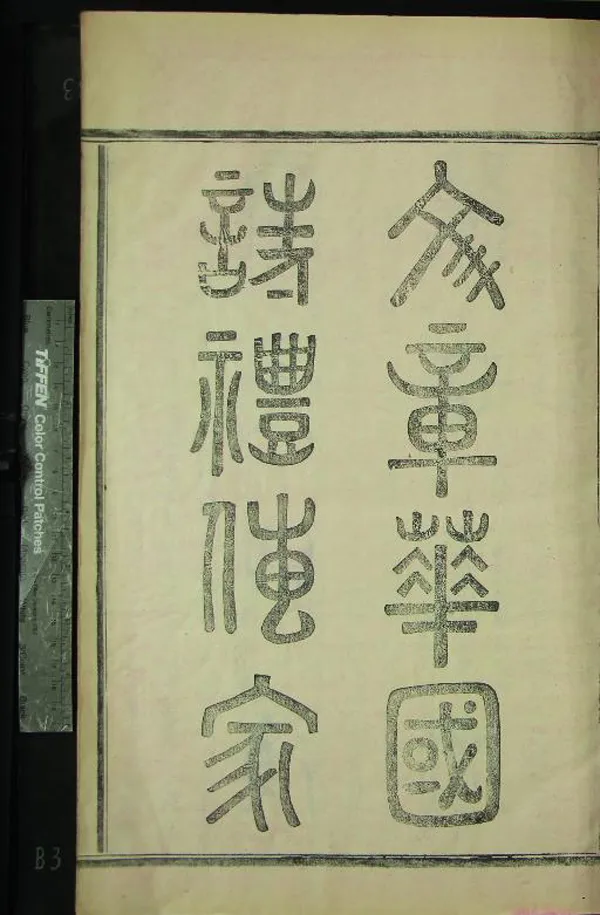 文章華國
詩禮傳家
TIFFEN Color Control Patches
B3